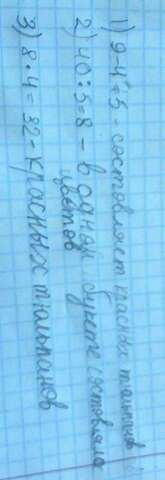 1) 9-4=5 - составляет красных тюльпанов
2) 40:5=8 - в одном букете составляло
цветов
3) 8·4=32 - красных тюльпанов